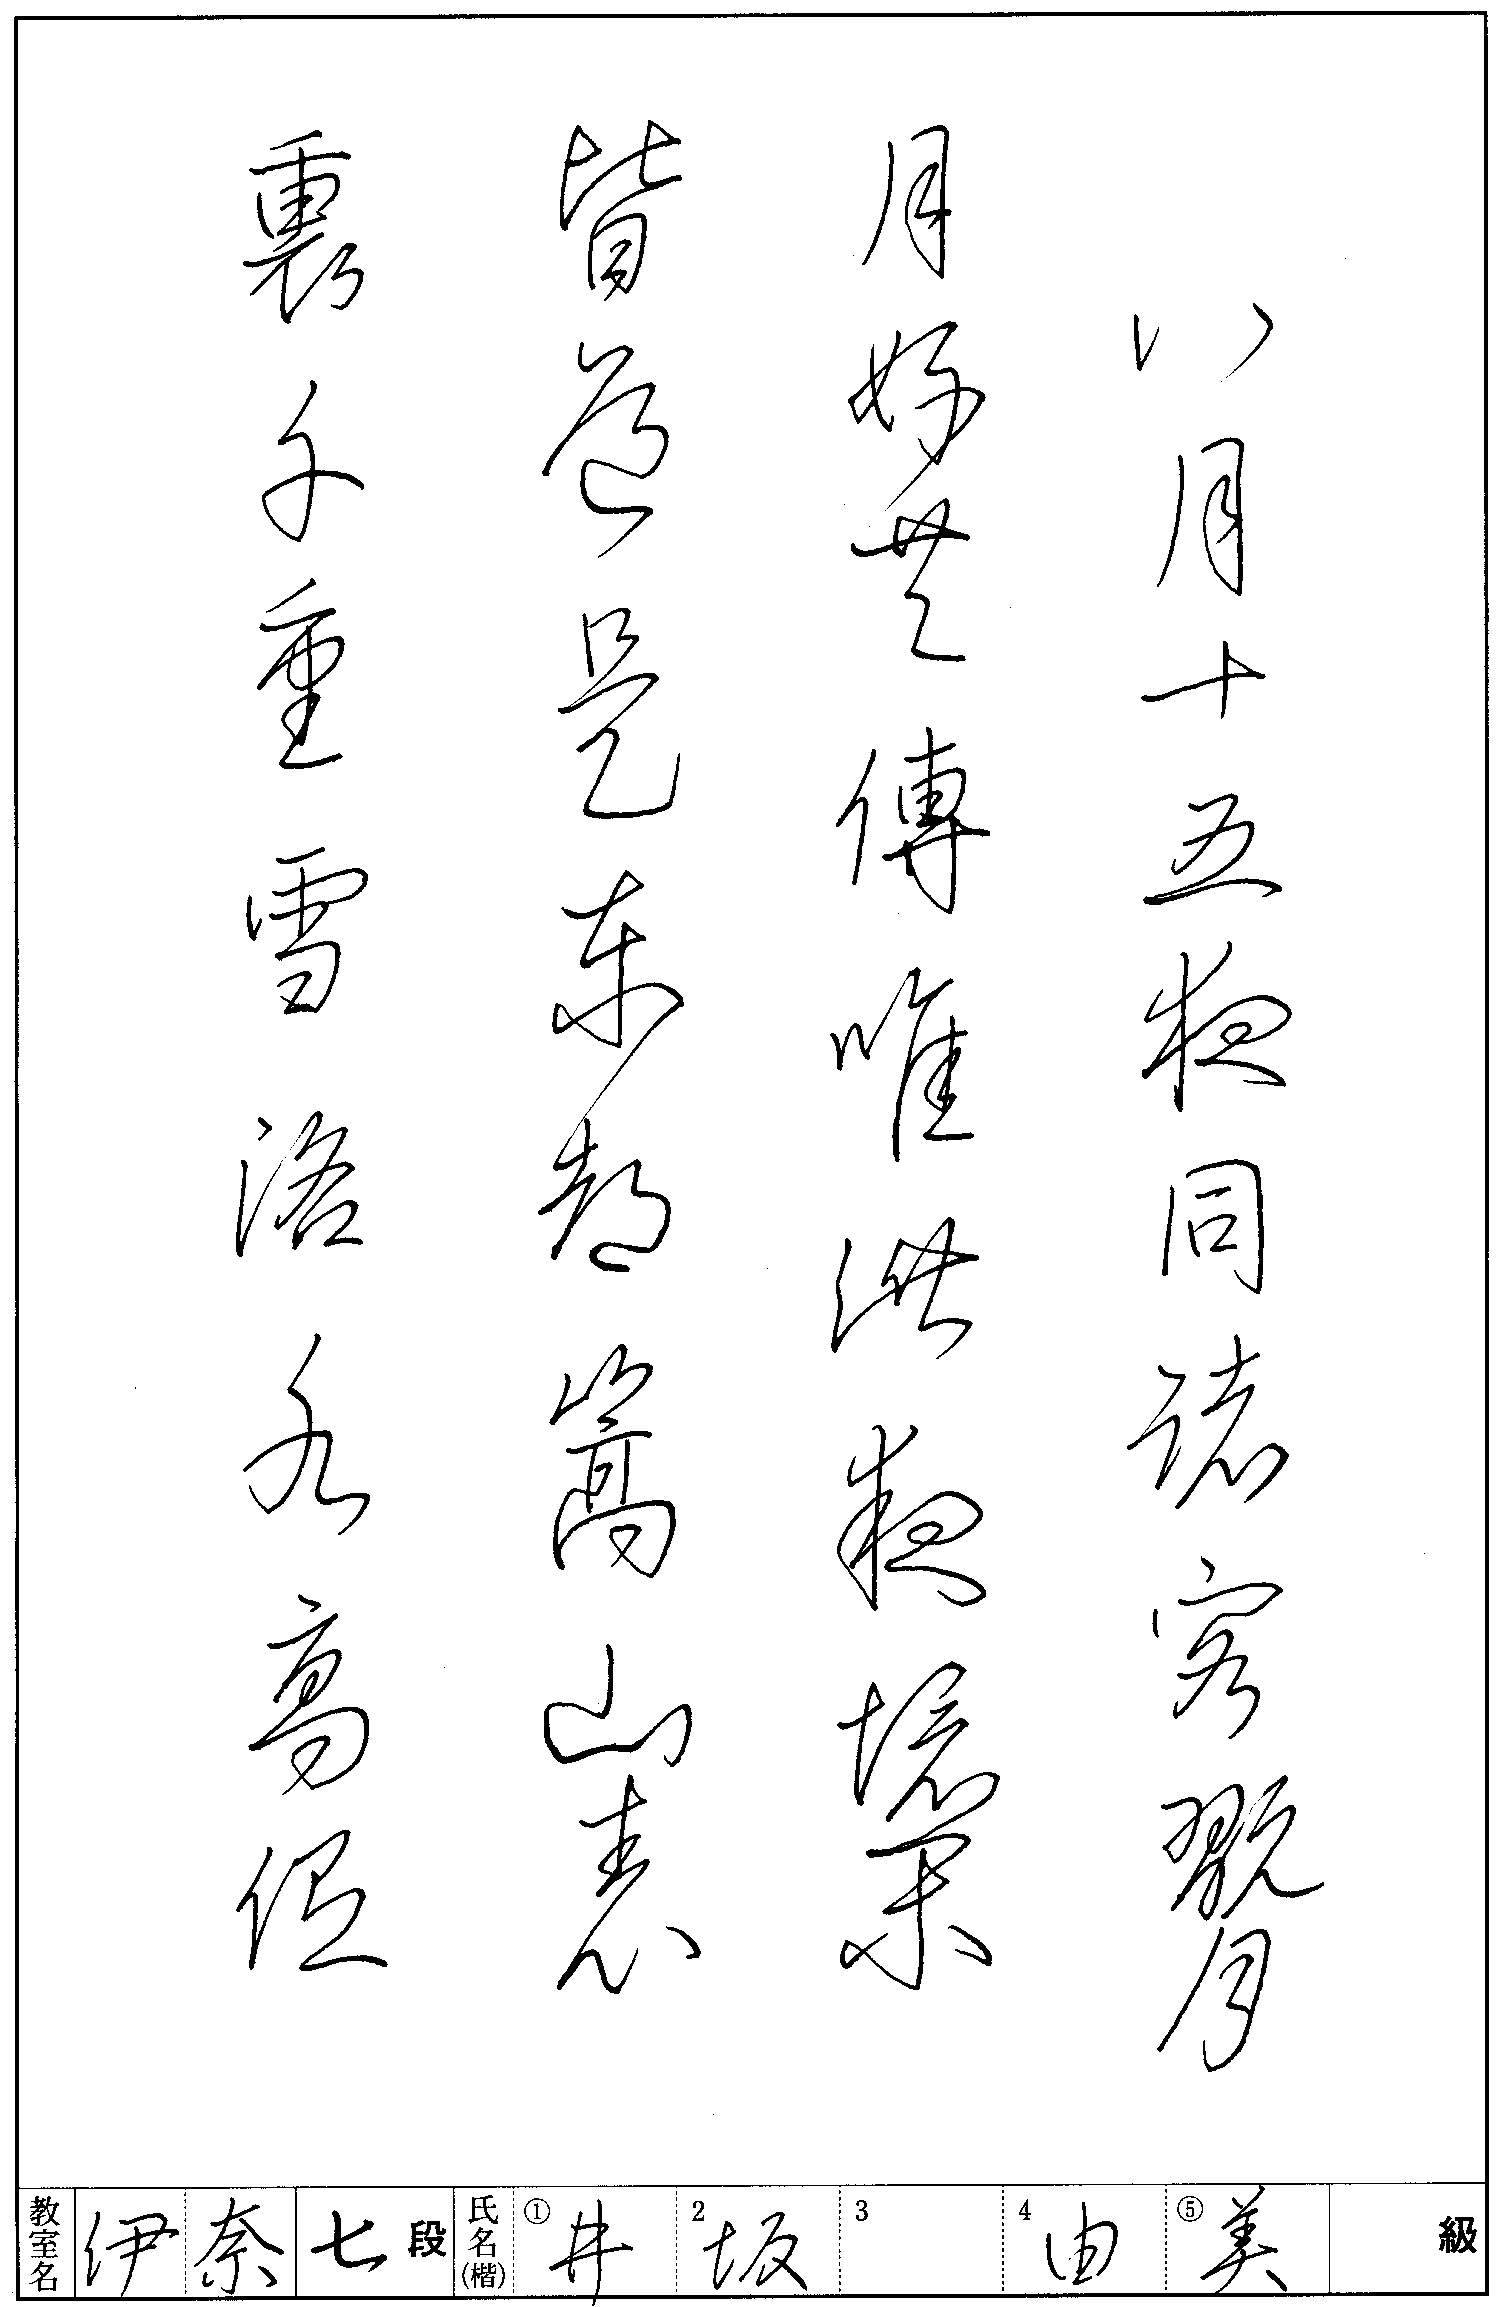 八月十五夜同諸客翫月
月好共傳唯此夜境閑
皆道是東都嵩山表
裏千重雪洛水高低
教室名 伊奈 七段 氏名(楷) ① 井 2 坂 3 4 由 ⑤ 美 級